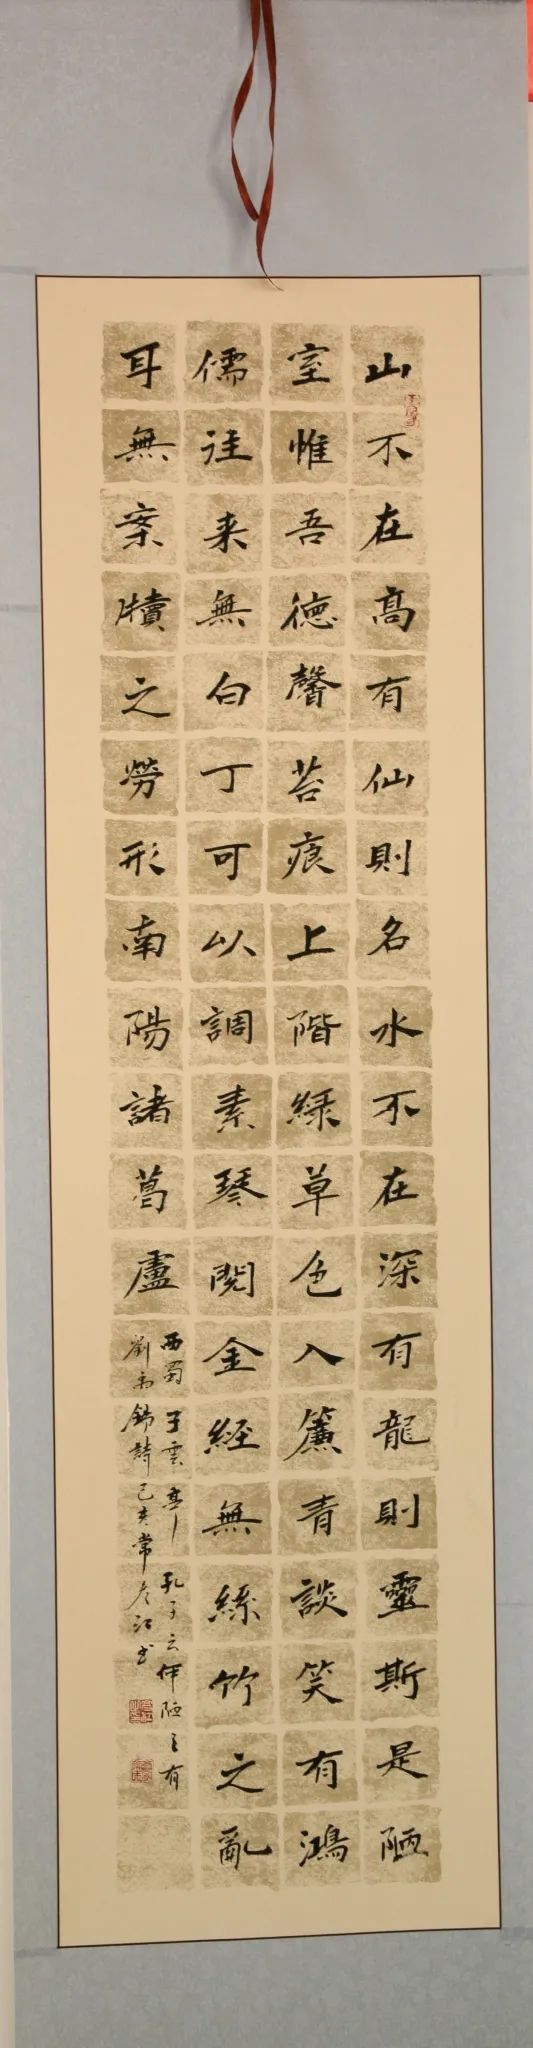 山不在高有仙則名水不在深有龍則靈斯是陋
室惟吾德馨苔痕上階緑草色入簾青談笑有鴻
儒往来無白丁可以調素琴閱金経無絲竹之亂
耳無案牘之勞形南陽諸葛廬
西蜀子雲亭孔子云何陋之有
劉禹錫詩己亥常彦江书